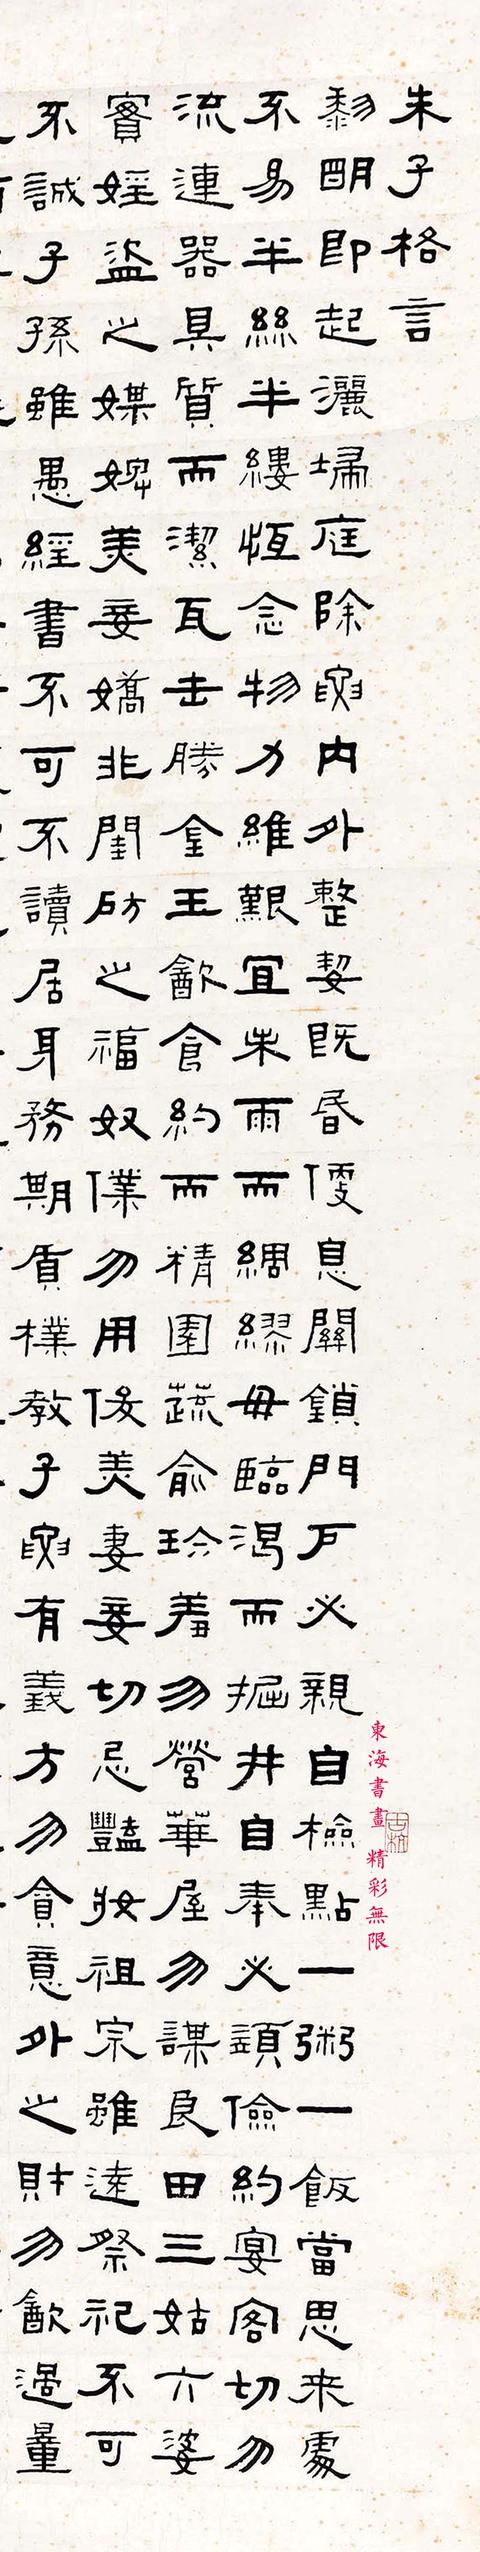 朱子格言
黎明即起灑埽庭除要内外整絜既昏便息關鎖門戶必親自檢點一粥一飯當思来處
不易半絲半縷恆念物力維艱宜未雨而綢繆毋臨渴而掘井自奉必須儉約宴客切勿
流連器具質而潔瓦缶勝金玉飲食約而精園蔬俞珍羞勿營華屋勿謀良田三姑六婆
實婬盜之媒婢美妾嬌非閨房之福奴僕勿用俊美妻妾切忌豔妝祖宗雖遠祭祀不可
不誠子孫雖愚經書不可不讀居身務期質樸教子要有義方勿貪意外之財勿飲過量
東海書畫 精彩無限